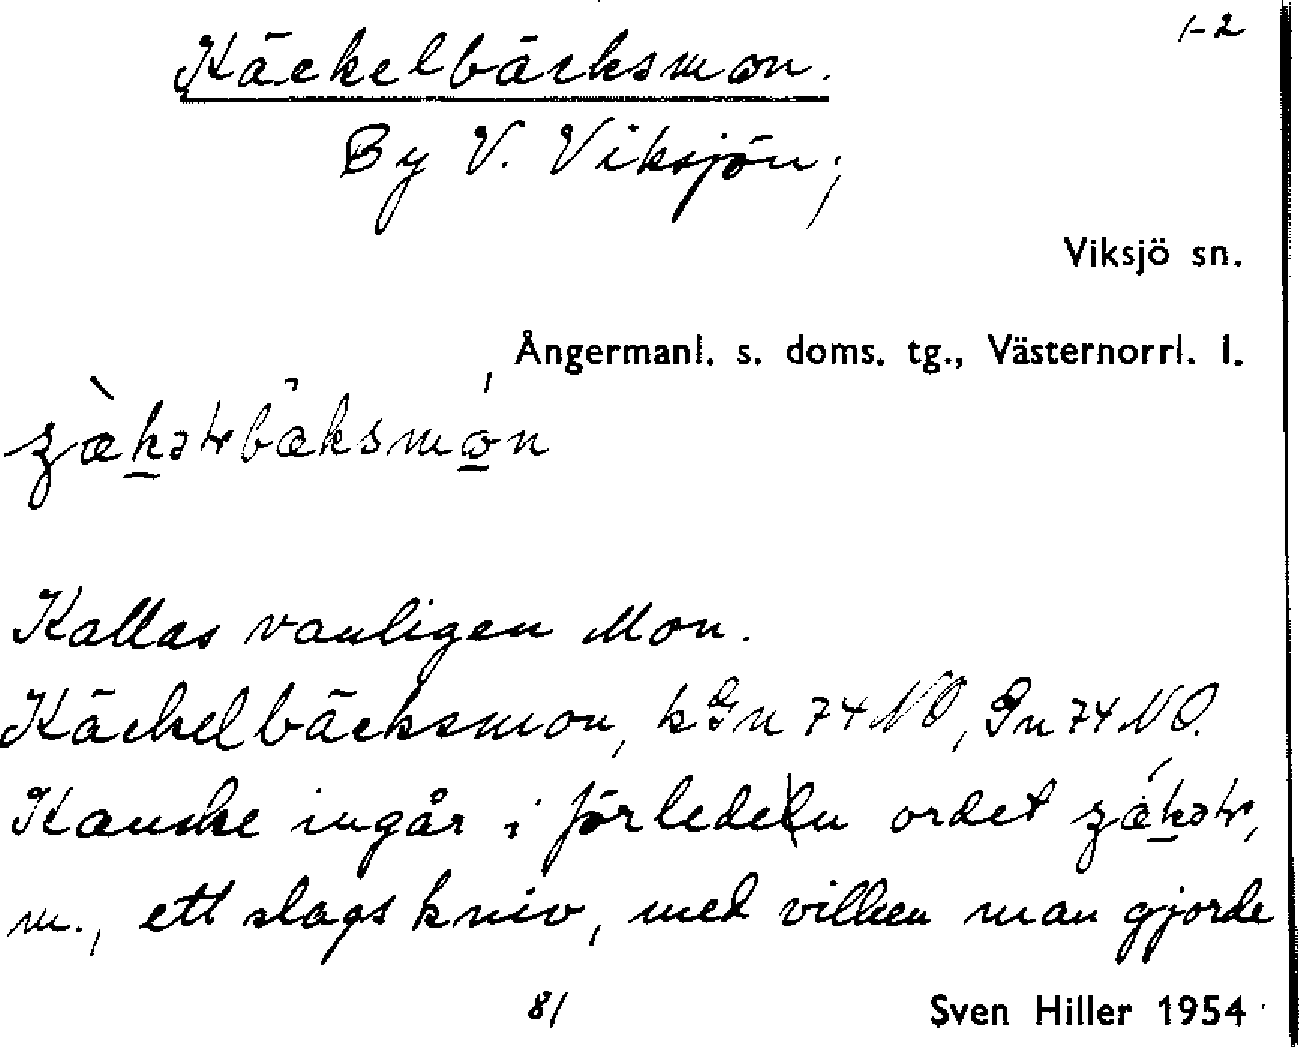 1-2
Käckelbäcksmon.
By V. Viksjön;
Viksjö sn.
Ångermanl. s. doms. tg., Västernorrl. l.
Kallas vanligen Mon.
Käckelbäcksmon, kGn 74 NO, Gn 74 NO.
Kanske ingår i förleden ordet
m., ett slags kniv, med vilken man gjorde
81
Sven Hiller 1954